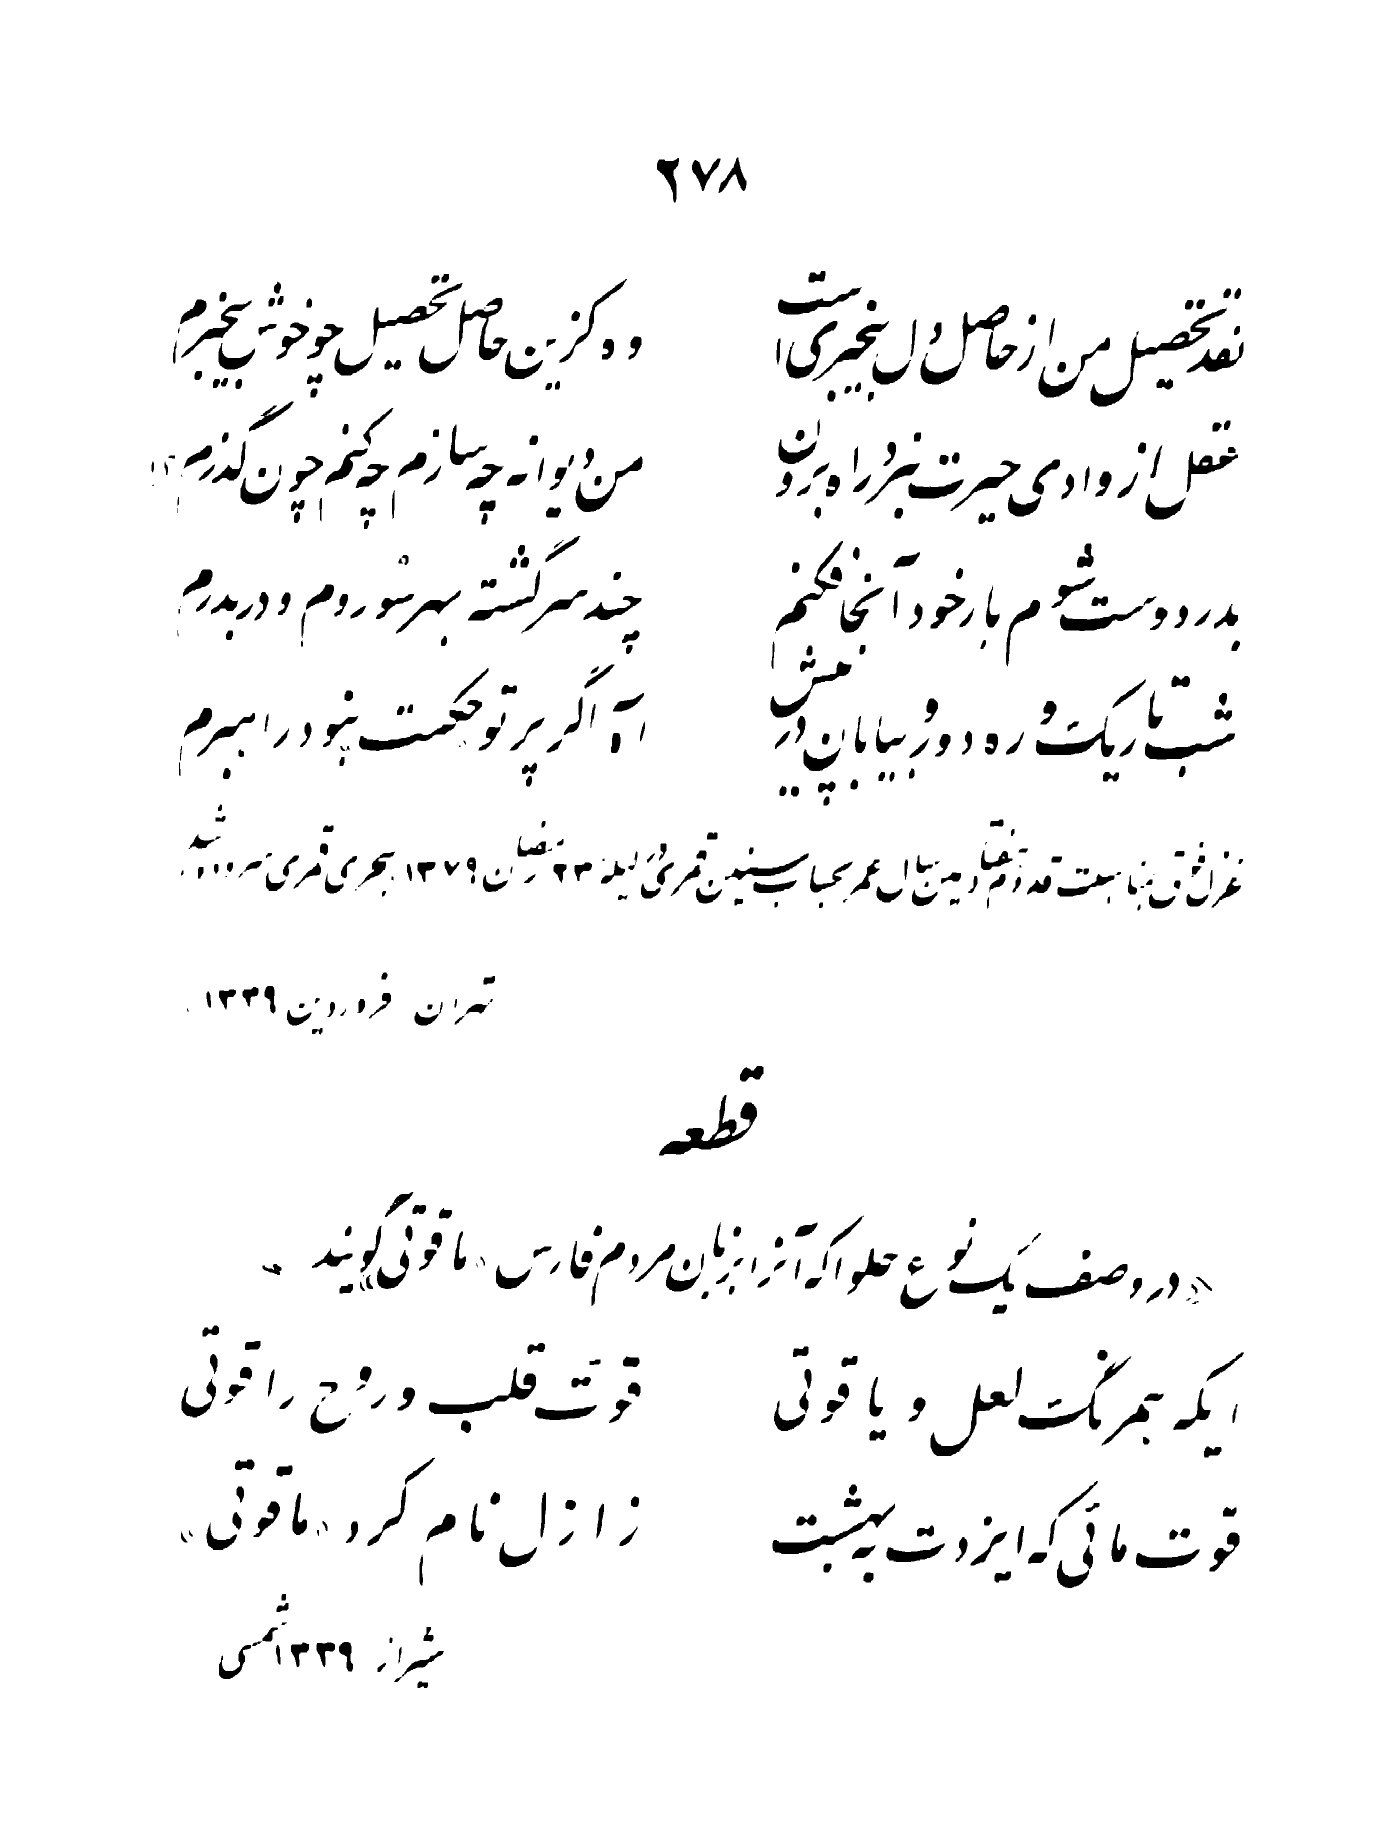 ۲۷۸
نقد تحصیل من از حاصل دل بیخبری است
وه کزین حاصل تحصیل چو خوش بیخبرم
عقل از وادی حیرت نبرد راه برون
من دیوانه چه سازم چه کنم چون گذرم
بدر دوست شوم بار خود آنجا فکنم
چند سرگشته بهر سو روم و دربدرم
شب تاریک و ره دور و بیابان در پیش
آه اگر پرتو حکمت نبود راهبرم
غزل فوق بمناسبت قدوم هفتادمین سال عمر بحساب سنین قمری در لیله ۲۳ رمضان ۱۳۷۹ هجری قمری سروده شد
تهران فروردین ۱۳۳۹
قطعه
«در وصف یک نوع حلوا که آنرا بزبان مردم فارس «ماقوتی» گویند»
ایکه همرنگ لعل و یاقوتی
قوّت قلب و روح را قوتی
قوت مائی که ایزدت به بهشت
ز ازل نام کرد «ماقوتی»
شیراز ۱۳۳۹ شمسی